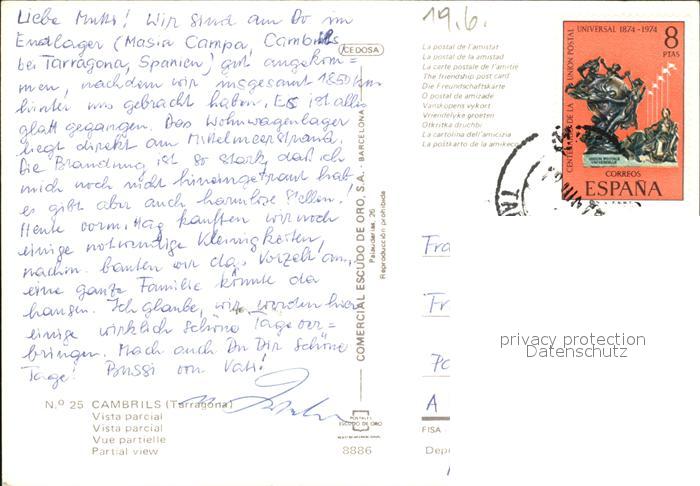 Liebe Mutti! Wir sind am Do im
Endlager (Masia Campa, Cambrils
bei Tarragona, Spanien) gut angekom=
men, nachdem wir insgesamt 1850 km
hinter uns gebracht haben. Es ist alles
glatt gegangen. Das Wohnwagenlager
liegt direkt am Mittelmeerstrand.
Die Brandung ist so stark, daß ich
mich noch nicht hineingetraut hab
es gibt aber auch harmlose Stellen!
Heute vormittag kauften wir noch
einige notwendige Kleinigkeiten,
nachm. bauten wir das Vorzelt an,
eine ganze Familie könnte da
hausen. Ich glaube, wir werden hier
einige wirklich schöne Tage ver=
bringen. Mach auch Du Dir schöne
Tage! Bussi von Vati!
N.º 25 CAMBRILS (Tarragona)
Vista parcial
Vista parcial
Vue partielle
Partial view
CEDOSA
COMERCIAL ESCUDO DE ORO, S.A. - BARCELONA
Palaudarias, 26
Reproducción prohibida
POSTALES
ESCUDO DE ORO
8886
19.6.
La postal de l'amistat
La postal de la amistad
La carte postale de l'amitié
The friendship post card
Die Freundschaftskarte
O postal de amizade
Vanskapens vykort
Vriendelyke groeten
Otkritka druchbi
La cartolina dell'amicizia
La poŝtkarto de la amikeco
UNIVERSAL 1874-1974
CENTENARIO DE LA UNION POSTAL
8
PTAS
UNION POSTALE
UNIVERSELLE
CORREOS
ESPAÑA
VIII
TA
Fra
Fr
Po
A
FISA
Dep
privacy protection
Datenschutz